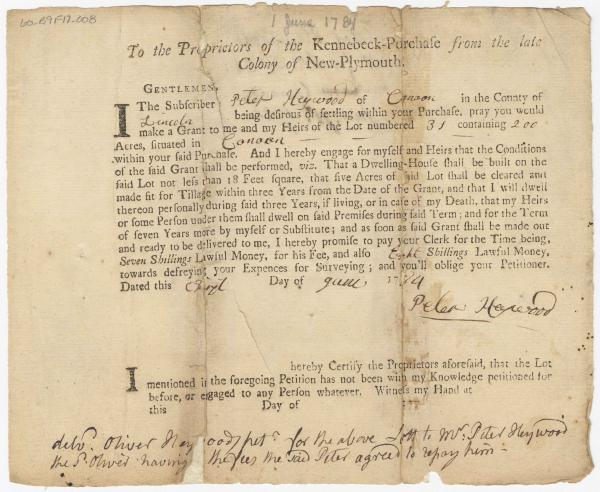 60-B9F17-008
1 June 1784
To the Proprietors of the Kennebeck-Purchase from the late
Colony of New-Plymouth.
GENTLEMEN,
I The Subscriber Peter Heywood of Canaan in the County of
Lincoln being desirous of settling within your Purchase, pray you would
make a Grant to me and my Heirs of the Lot numbered 31 containing 200
Acres, situated in Canaan
within your said Purchase. And I hereby engage for myself and Heirs that the Conditions
of the said Grant shall be performed, viz. That a Dwelling-House shall be built on the
said Lot not less than 18 Feet square, that five Acres of said Lot shall be cleared and
made fit for Tillage within three Years from the Date of the Grant, and that I will dwell
thereon personally during said three Years, if living, or in case of my Death, that my Heirs
or some Person under them shall dwell on said Premises during said Term; and for the Term
of seven Years more by myself or Substitute; and as soon as said Grant shall be made out
and ready to be delivered to me, I hereby promise to pay your Clerk for the Time being,
Seven Shillings Lawful Money, for his Fee, and also Eight Shillings Lawful Money,
towards defreying your Expences for Surveying; and you'll oblige your Petitioner.
Dated this Day of June 1784
Peter Heywood
I hereby Certify the Proprietors aforesaid, that the Lot
mentioned in the foregoing Petition has not been with my Knowledge petitioned for
before, or engaged to any Person whatever. Witness my Hand at
this Day of
delvd. Oliver Heywoods petn. for the above Lott to Mr. Peter Heywood
the sd. Oliver having the fees the said Peter agreed to repay him